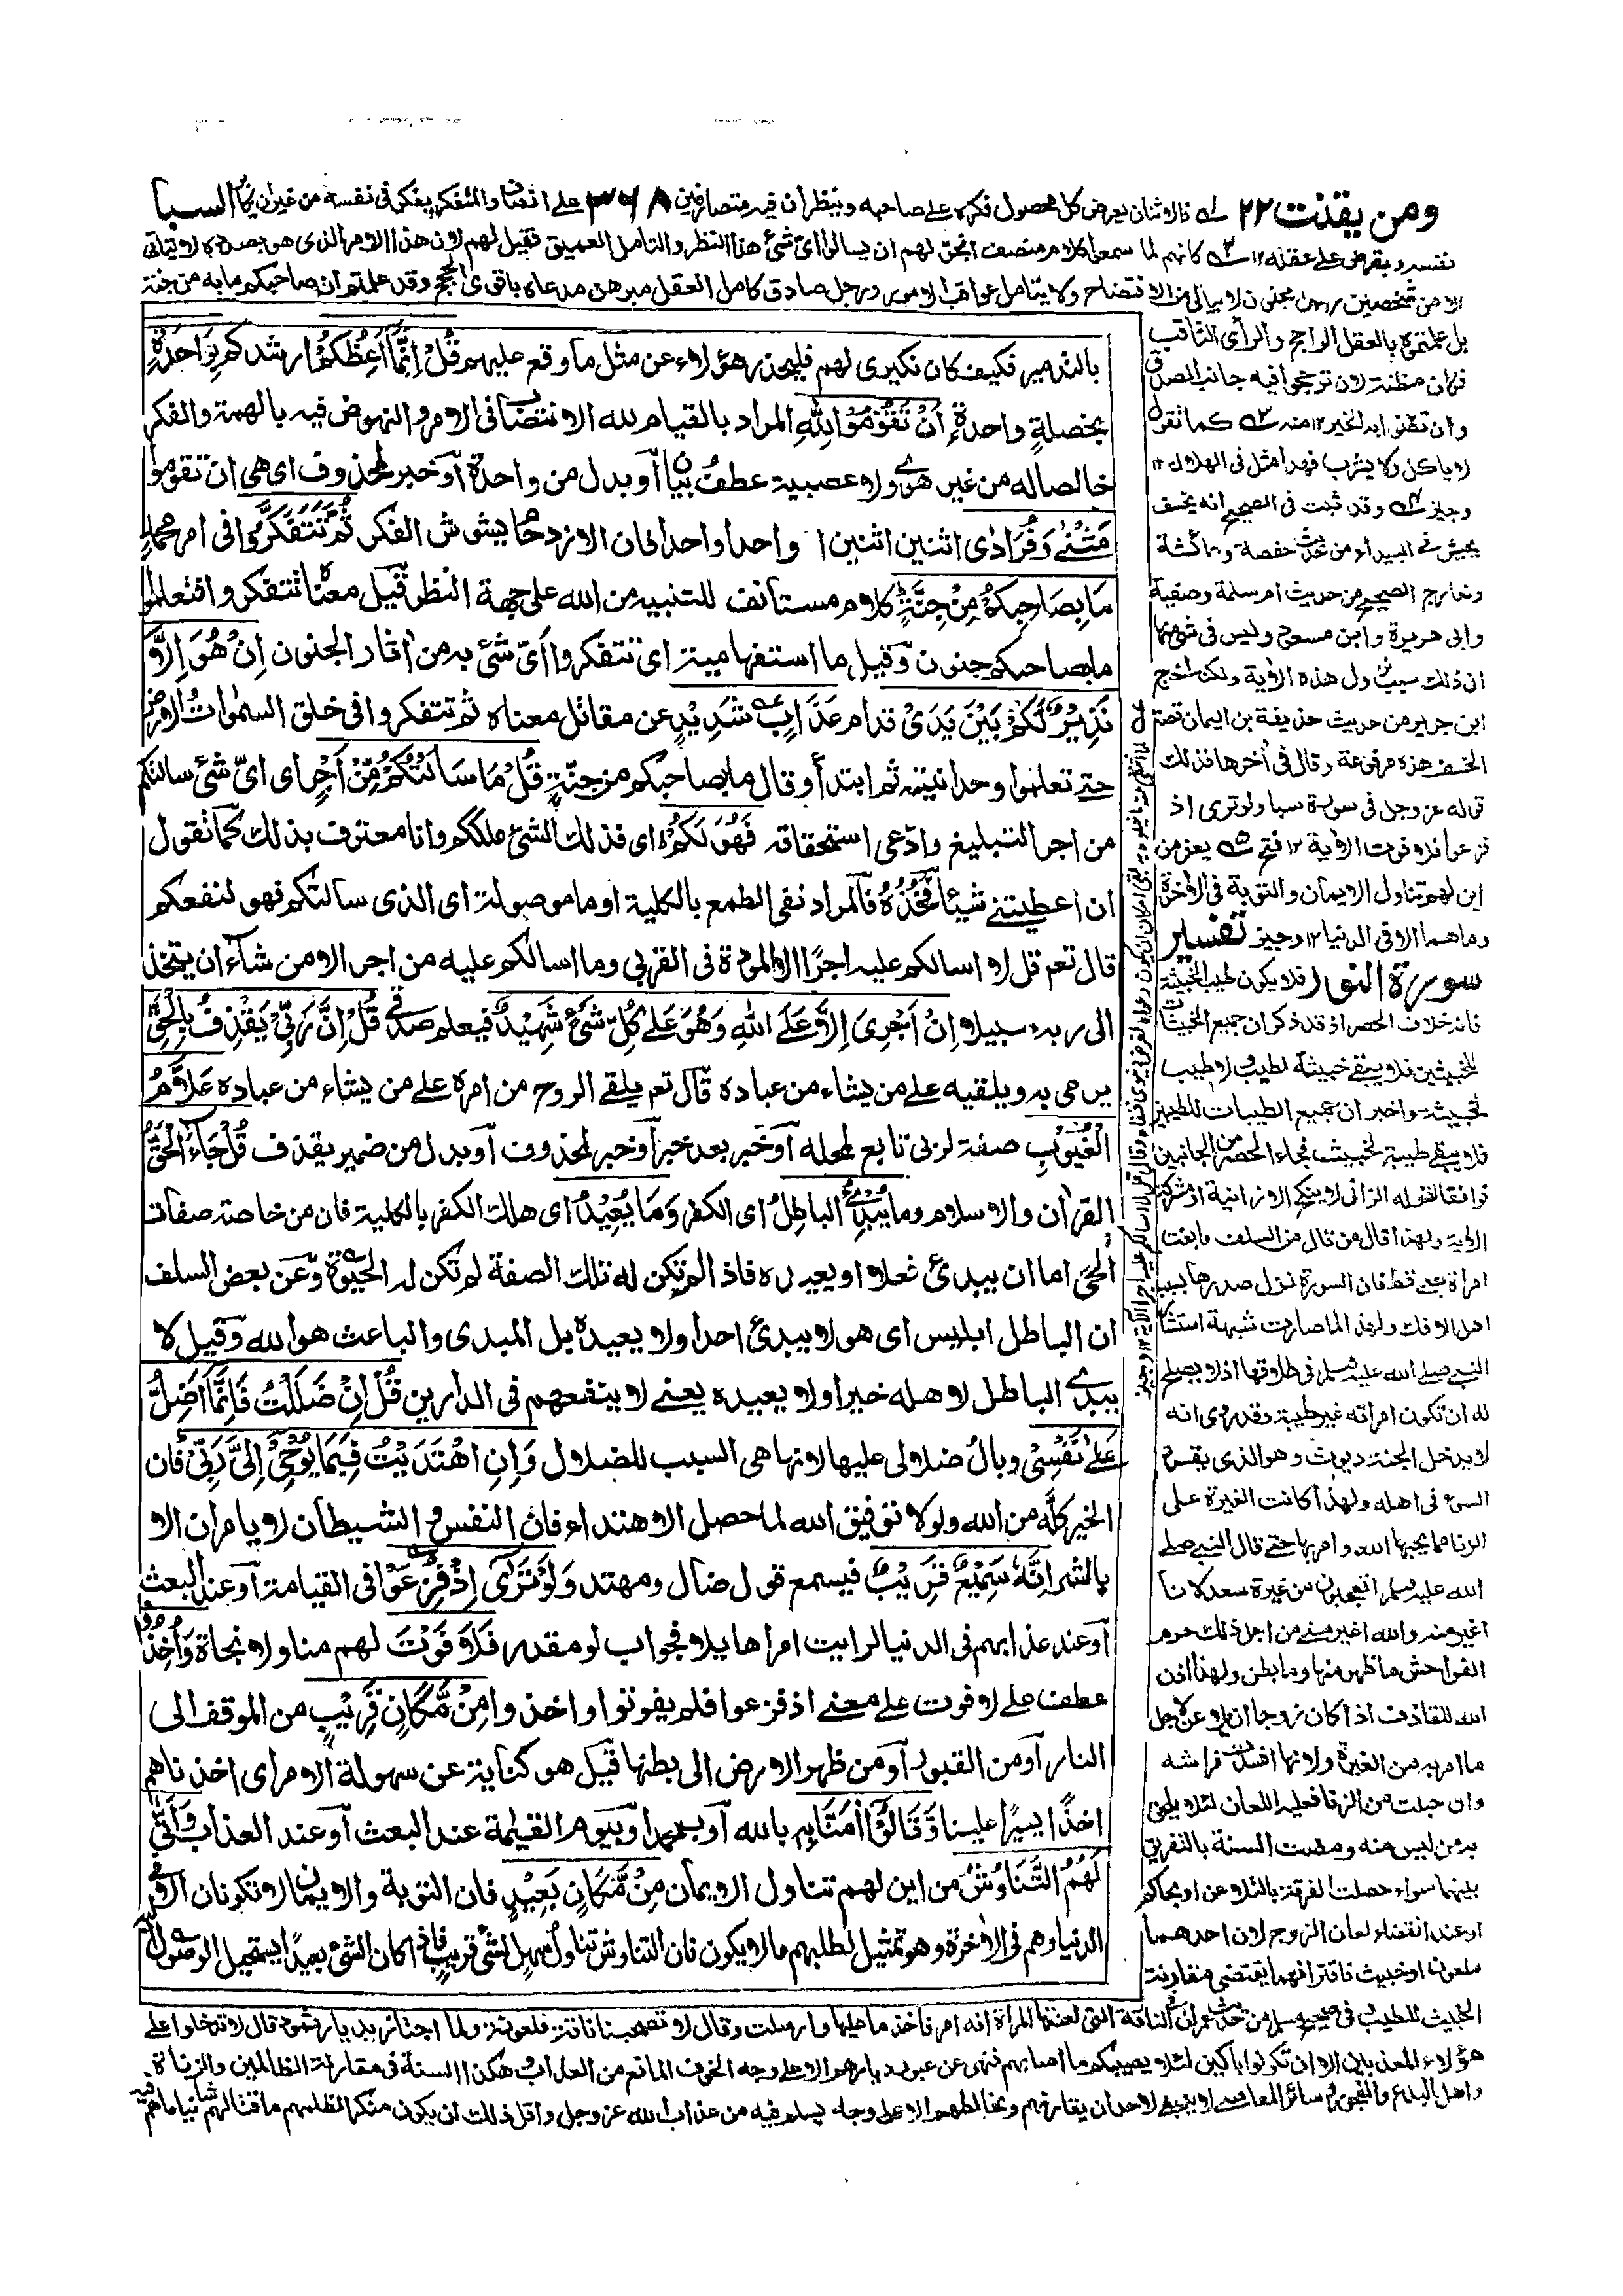 ومن يقنت ٢٢
٣٦٨
السبا
فالاثنان يعرض كل محصول فكره على صاحبه وينظران فيه متصادقين
والمتفكر يفكر في نفسه من غير ان
نفسه ويعرض على عقله ١٢ كانهم لما سمعوا كلام منصف انجر لهم ان يسالوا اى شئ هذا النظر والتامل العميق فقيل لهم لان هذا الامر الذى هو بصدده لا يتاتى
الا من شخصين مجنون لا يبالى من الافتضاح ولا يتامل عواقب الامور ورجل صادق كامل العقل مبرهن مدعاه باقوى الحجج وقد علمتم ان صاحبكم ما به من جنة
بالتدمير فكيف كان نكيرى لهم فليحذر هؤلاء عن مثل ما وقع عليهم قُلْ اِنَّمَا اَعِظُكُمْ ارشدكم بِوَاحِدَةٍ
بخصلةٍ واحدةٍ اَنْ تَقُوْمُوْا لِلّٰهِ المراد بالقيام لله الانتصاب فى الامر والنهوض فيه بالهمة والفكر
خالصا له من غير هوى ولا عصبية عطف بيان او بدل من واحدة او خبر لمحذوف اى هى ان تقوموا
مَثْنٰى وَفُرَادٰى اثنين اثنين واحدا واحدا فان الازدحام يشوش الفكر ثُمَّ تَتَفَكَّرُوْا فى امر محمد
مَا بِصَاحِبِكُمْ مِنْ جِنَّةٍ كلام مستانف للتنبيه من الله على جهة النظر قيل معناه تتفكروا فتعلموا
ما بصاحبكم جنون وقيل ما استفهامية اى تتفكروا اى شئ به من اٰثار الجنون اِنْ هُوَ اِلَّا
نَذِيْرٌ لَّكُمْ بَيْنَ يَدَىْ قدام عَذَابٍ شَدِيْدٍ عن مقاتل معناه ثم تتفكروا فى خلق السمٰوات والارض
حتى تعلموا وحدانيته ثم ابتدأ وقال ما بصاحبكم من جنّةٍ قُلْ مَا سَاَلْتُكُمْ مِّنْ اَجْرٍ اى اىّ شئ سالتكم
من اجر التبليغ وادّعى استحقاقه فَهُوَ لَكُمْ اى فذلك الشئ ملككم وانا معترف بذلك كما تقول
ان اعطيتنى شيئا فخذه فالمراد نفى الطمع بالكلية او ما موصولة اى الذى سالتكم فهو لنفعكم
قال تعم قل لا اسالكم عليه اجرًا الا المودة فى القربى وما اسالكم عليه من اجر الا من شاء ان يتخذ
الى ربه سبيلا اِنْ اَجْرِىَ اِلَّا عَلَى اللّٰهِ وَهُوَ عَلٰى كُلِّ شَىْءٍ شَهِيْدٌ فيعلم صدقى قُلْ اِنَّ رَبِّىْ يَقْذِفُ بِالْحَقِّ
يرمى به ويلقيه على من يشاء من عباده قال تعم يلقى الروح من امره على من يشاء من عباده عَلَّامُ
الْغُيُوْبِ صفة لربى تابع لمحله او خبر بعد خبر او خبر لمحذوف او بدل من ضمير يقذف قُلْ جَاءَ الْحَقُّ
القراٰن والاسلام وما يُبْدِئُ الْبَاطِلُ اى الكفر وَمَا يُعِيْدُ اى هلك الكفر بالكلية فان من خاصة صفات
الحى اما ان يبدئ فعلا او يعيده فاذا لم تكن له تلك الصفة لم تكن له الحيٰوة وعن بعض السلف
ان الباطل ابليس اى هو لا يبدئ احدا ولا يعيده بل المبدى والباعث هو الله وقيل لا
يبدى الباطل لاهله خيرا ولا يعيده يعنى لا ينفعهم فى الدارين قُلْ اِنْ ضَلَلْتُ فَاِنَّمَا اَضِلُّ
عَلٰى نَفْسِىْ وبال ضلالى عليها لانها هى السبب للضلال وَاِنِ اهْتَدَيْتُ فَبِمَا يُوْحِىْ اِلَىَّ رَبِّىْ فان
الخير كلّه من الله ولولا توفيق الله لما حصل الاهتداء فان النفس والشيطان لا يامران الا
بالشر اِنَّهٗ سَمِيْعٌ قَرِيْبٌ فيسمع قول ضال ومهتد وَلَوْ تَرٰى اِذْ فَزِعُوْا فى القيامة او عند البعث
او عند عذابهم فى الدنيا لرايت امرا هايلا فجواب لو مقدر فَلَا فَوْتَ لهم منا ولا نجاة وَاُخِذُوْا
عطف على لا فوت على معنى اذ فزعوا فلم يفوتوا واخذوا مِنْ مَّكَانٍ قَرِيْبٍ من الموقف الى
النار او من القبور او من ظهر الارض الى بطنها قيل هو كناية عن سهولة الامر اى اخذناهم
اخذًا يسيرًا علينا وَّقَالُوْا اٰمَنَّا بِهٖ بالله او بمحمد او بيوم القيٰمة عند البعث او عند العذاب وَاَنّٰى
لَهُمُ التَّنَاوُشُ من اين لهم تناول الايمان مِنْ مَّكَانٍ بَعِيْدٍ فان التوبة والايمان لا تكونان الا فى
الدنيا وهم فى الاٰخرة وهو تمثيل لطلبهم ما لا يكون فان التناوش تناول سهل لشئ قريب فاذا كان الشئ بعيدًا يستحيل الوصول
بل علمتموه بالعقل الراجح والراى الثاقب
فكان مظنة لان ترجحوا فيه جانب الصدق
وان تظنوا به الخير ١٢ منه كما تقول
لا ياكل ولا يشرب فهذا مثل فى الهلاك ١٢
وجيز وقد ثبت فى الصحيح انه يخسف
بجيش فى البيداء من حديث حفصة وعائشة
وخارج الصحيح من حديث ام سلمة وصفية
وابى هريرة وابن مسعود وليس فى شئ منها
ان ذلك سبب نزول هذه الاٰية ولكن اخرج
ابن جرير من حديث حذيفة بن اليمان قصة
الخسف هذه مرفوعة وقال فى اٰخرها فذلك
قوله عز وجل فى سورة سبا ولو ترى اذ
فزعوا فلا فوت الاٰية ١٢ فتح يعنى من
اين لهم تناول الايمان والتوبة فى الاٰخرة
وما هما الا فى الدنيا ١٢ وجيز تفسير
سورة النور فلا يكون طيب لخبيثة
فانه خلاف الحصر اذ قد ذكر ان جميع الخبيثات
للخبيثين فلا يبقى خبيثة لطيب ولا طيب
لخبيثة واخبر ان جميع الطيبات للطيبين
فلا يبقى طيبة لخبيث فجاء الحصر من الجانبين
موافقا لقوله الزانى لا ينكح الا زانية او مشركة
الاٰية ولهذا قال من قال من السلف ما بغت
امراة نبى قط فان السورة نزل صدرها بسبب
اهل الافك ولهذا لما صارت شبهة استشار
النبى صلى الله عليه وسلم فى طلاقها اذ لا يصلح
له ان تكون امراته غير طيبة وقد روى انه
لا يدخل الجنة ديوث وهو الذى يقر
السوء فى اهله ولهذا كانت الغيرة على
الزنا مما يحبها الله وامر بها حتى قال النبى صلى
الله عليه وسلم اتعجبون من غيرة سعد لانا
اغير منه والله اغير منى من اجل ذلك حرم
الفواحش ما ظهر منها وما بطن ولهذا اذن
الله للقاذف اذا كان زوجا ان يلاعن لاجل
ما امر به من الغيرة ولانها افسدت فراشه
وان حبلت من الزنا فعليه اللعان لئلا يلحق
به من ليس منه ومضت السنة بالتفريق
بينهما سواء حصلت الفرقة بالتلاعن او بحاكم
او عند انقضاء لعان الزوج لان احدهما
ملعون او خبيث فاقترانهما يقتضى مقارنة
الخبيث للطيب فى صحيح مسلم من حديث عمران الناقة التى لعنتها المراة انه امر فاخذ ما عليها وارسلت وقال لا تصحبنا ناقة ملعونة ولما اجتاز بديار ثمود قال لا تدخلوا على
هؤلاء المعذبين الا ان تكونوا باكين لئلا يصيبكم ما اصابهم فنهى عن عبور ديارهم الا على وجه الخوف المانع من العذاب وهكذا السنة فى مقارنة الظالمين والزناة
واهل البدع والفجور وسائر المعاصى لا ينبغى لاحد ان يقارنهم ويخالطهم الا على وجه يسلم فيه من عذاب الله عز وجل واقل ذلك ان يكون منكرا لظلمهم ماقتا لهم شانيا ما هم فيه